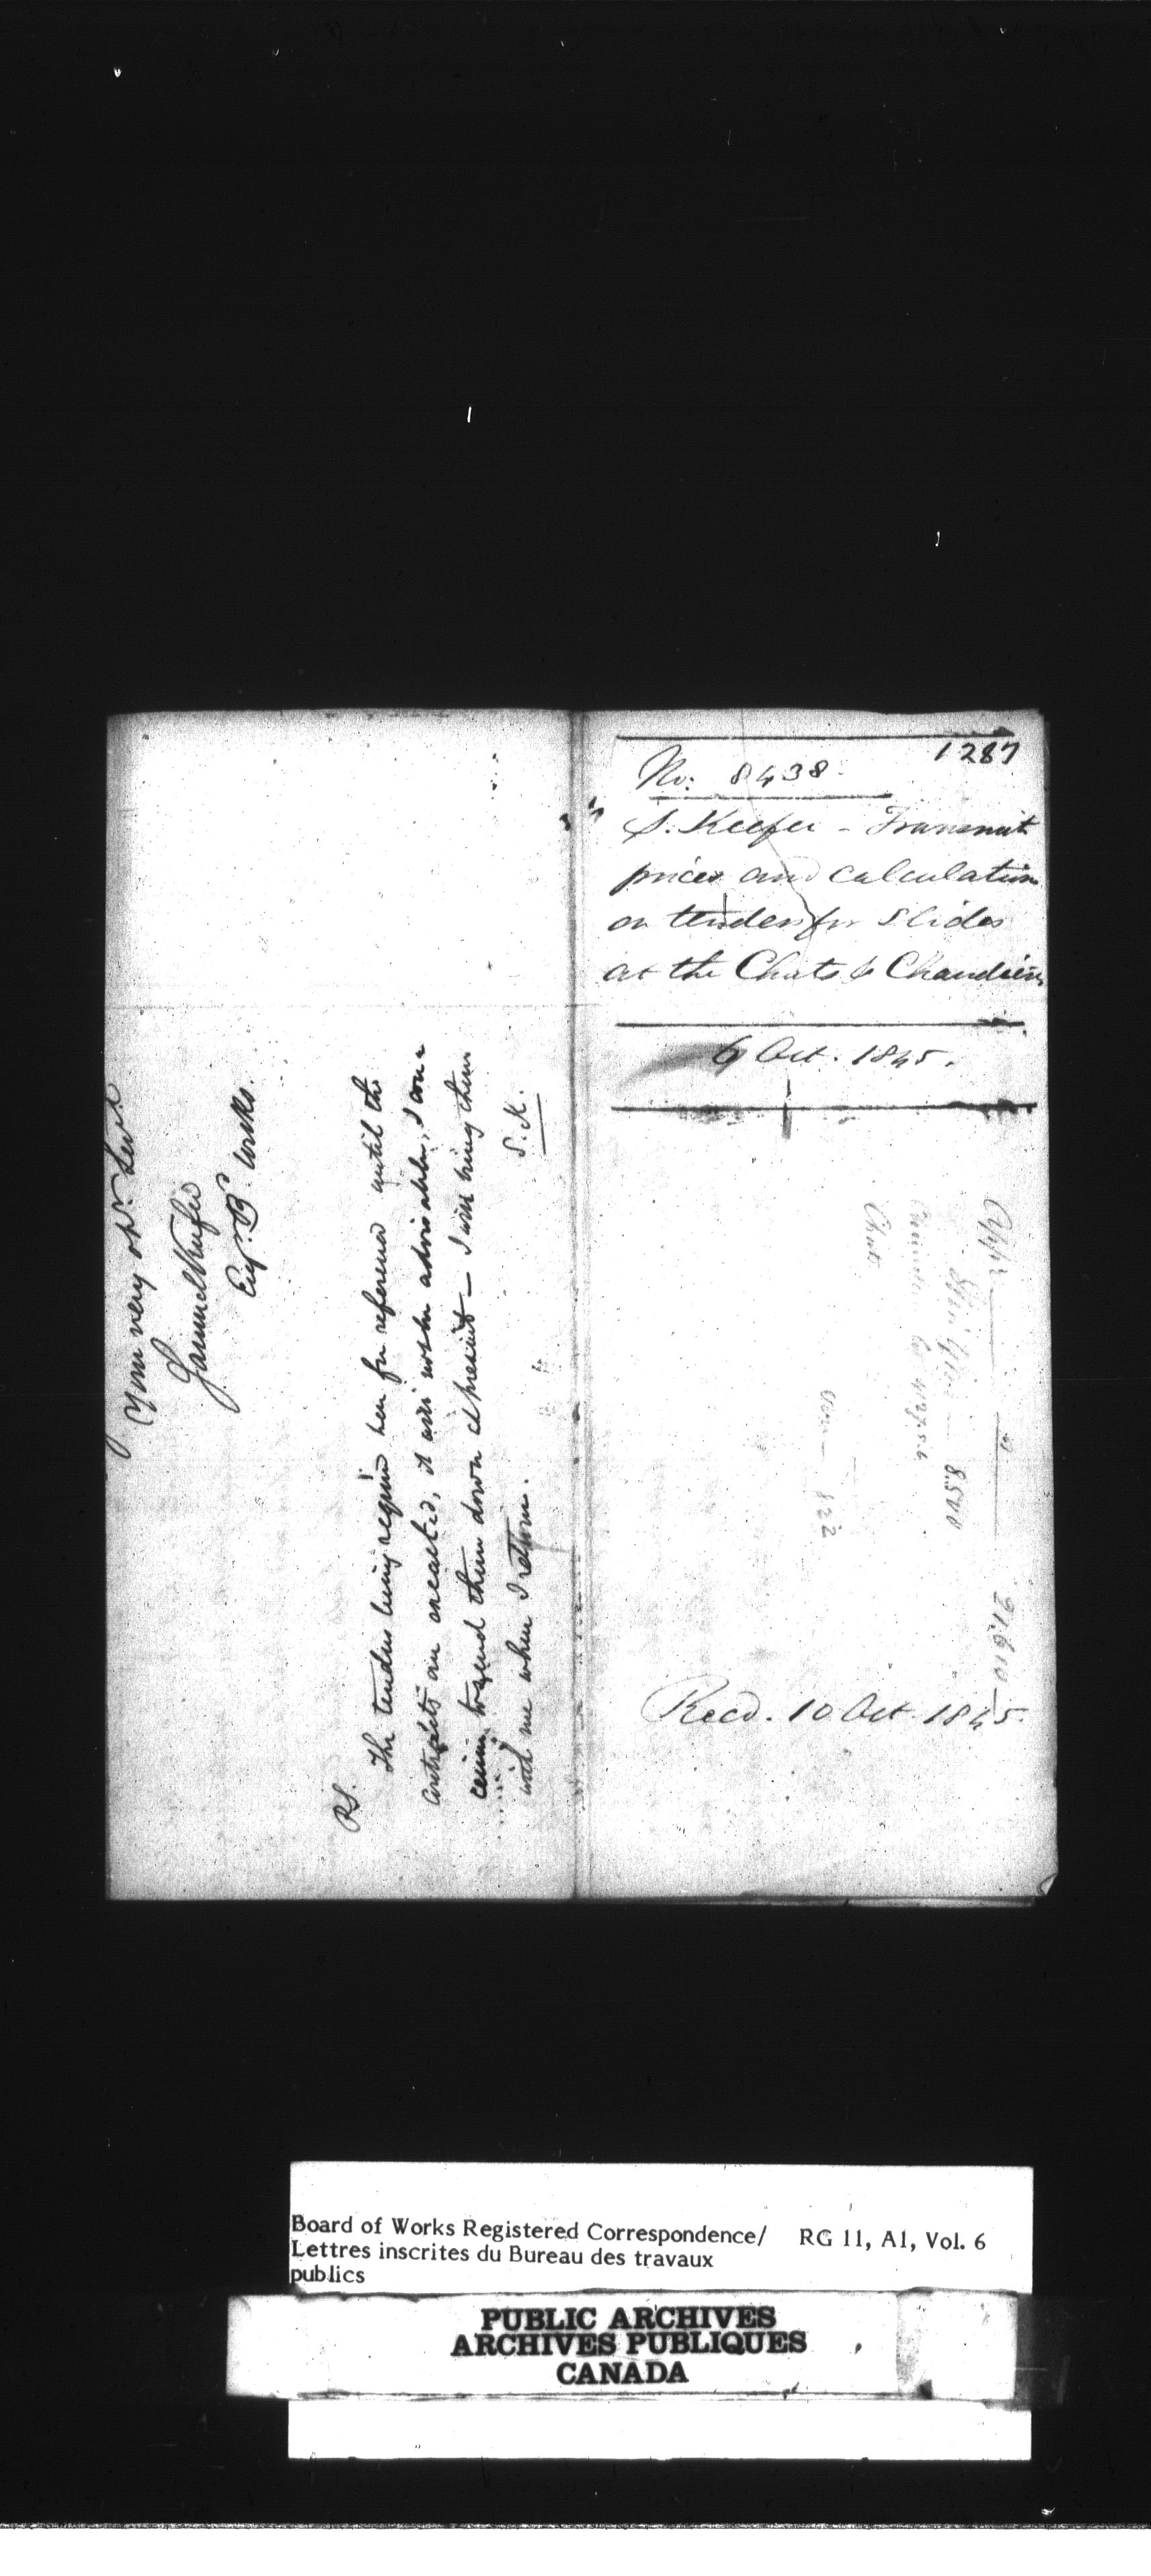 Your very obt. Servt
Samuel Keefer
Engr. B. Works.
P.S.
The tenders being required here for reference until the
contracts are executed, it will not be advisable, I con-
ceive, to send them down at present — I will bring them
with me when I return.
S. K.
1287
No: 8438.
S. Keefer - Transmit
prices and calculation
on tenders for Slides
at the Chats & Chaudière
6 Oct. 1845.
8.500
Chats
822
21,610
Recd. 10 Oct. 1845.
Board of Works Registered Correspondence/
Lettres inscrites du Bureau des travaux
publics
RG 11, A1, Vol. 6
PUBLIC ARCHIVES
ARCHIVES PUBLIQUES
CANADA